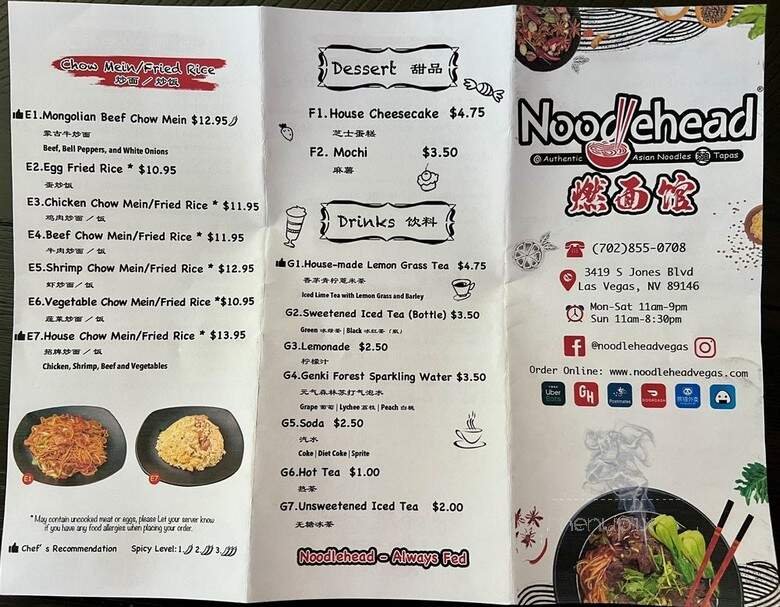 Chow Mein/Fried Rice
炒面 / 炒饭
E1.Mongolian Beef Chow Mein $12.95
蒙古牛炒面
Beef, Bell Peppers, and White Onions
E2.Egg Fried Rice * $10.95
蛋炒饭
E3.Chicken Chow Mein/Fried Rice * $11.95
鸡肉炒面 / 饭
E4.Beef Chow Mein/Fried Rice * $11.95
牛肉炒面 / 饭
E5.Shrimp Chow Mein/Fried Rice * $12.95
虾炒面 / 饭
E6.Vegetable Chow Mein/Fried Rice *$10.95
蔬菜炒面 / 饭
E7.House Chow Mein/Fried Rice * $13.95
招牌炒面 / 饭
Chicken, Shrimp, Beef and Vegetables
E1
E7
*May contain uncooked meat or eggs, please Let your server know
if you have any food allergies when placing your order.
Chef's Recommendation Spicy Level: 1. 2. 3.
Dessert 甜品
F1. House Cheesecake $4.75
芝士蛋糕
F2. Mochi $3.50
麻薯
Drinks 饮料
G1.House-made Lemon Grass Tea $4.75
香茅青柠薏米茶
Iced Lime Tea with Lemon Grass and Barley
G2.Sweetened Iced Tea (Bottle) $3.50
Green 冰绿茶 | Black 冰红茶 (瓶)
G3.Lemonade $2.50
柠檬汁
G4.Genki Forest Sparkling Water $3.50
元气森林苏打气泡水
Grape 葡萄 | Lychee 荔枝 | Peach 白桃
G5.Soda $2.50
汽水
Coke | Diet Coke | Sprite
G6.Hot Tea $1.00
热茶
G7.Unsweetened Iced Tea $2.00
无糖冰茶
Noodlehead - Always Fed
Noodlehead®
@ Authentic Asian Noodles 麵 Tapas
燃面馆
(702)855-0708
3419 S Jones Blvd
Las Vegas, NV 89146
Mon-Sat 11am-9pm
Sun 11am-8:30pm
@noodleheadvegas
Order Online: www.noodleheadvegas.com
Uber Eats
GH
Postmates
DOORDASH
熊猫外卖
menupix